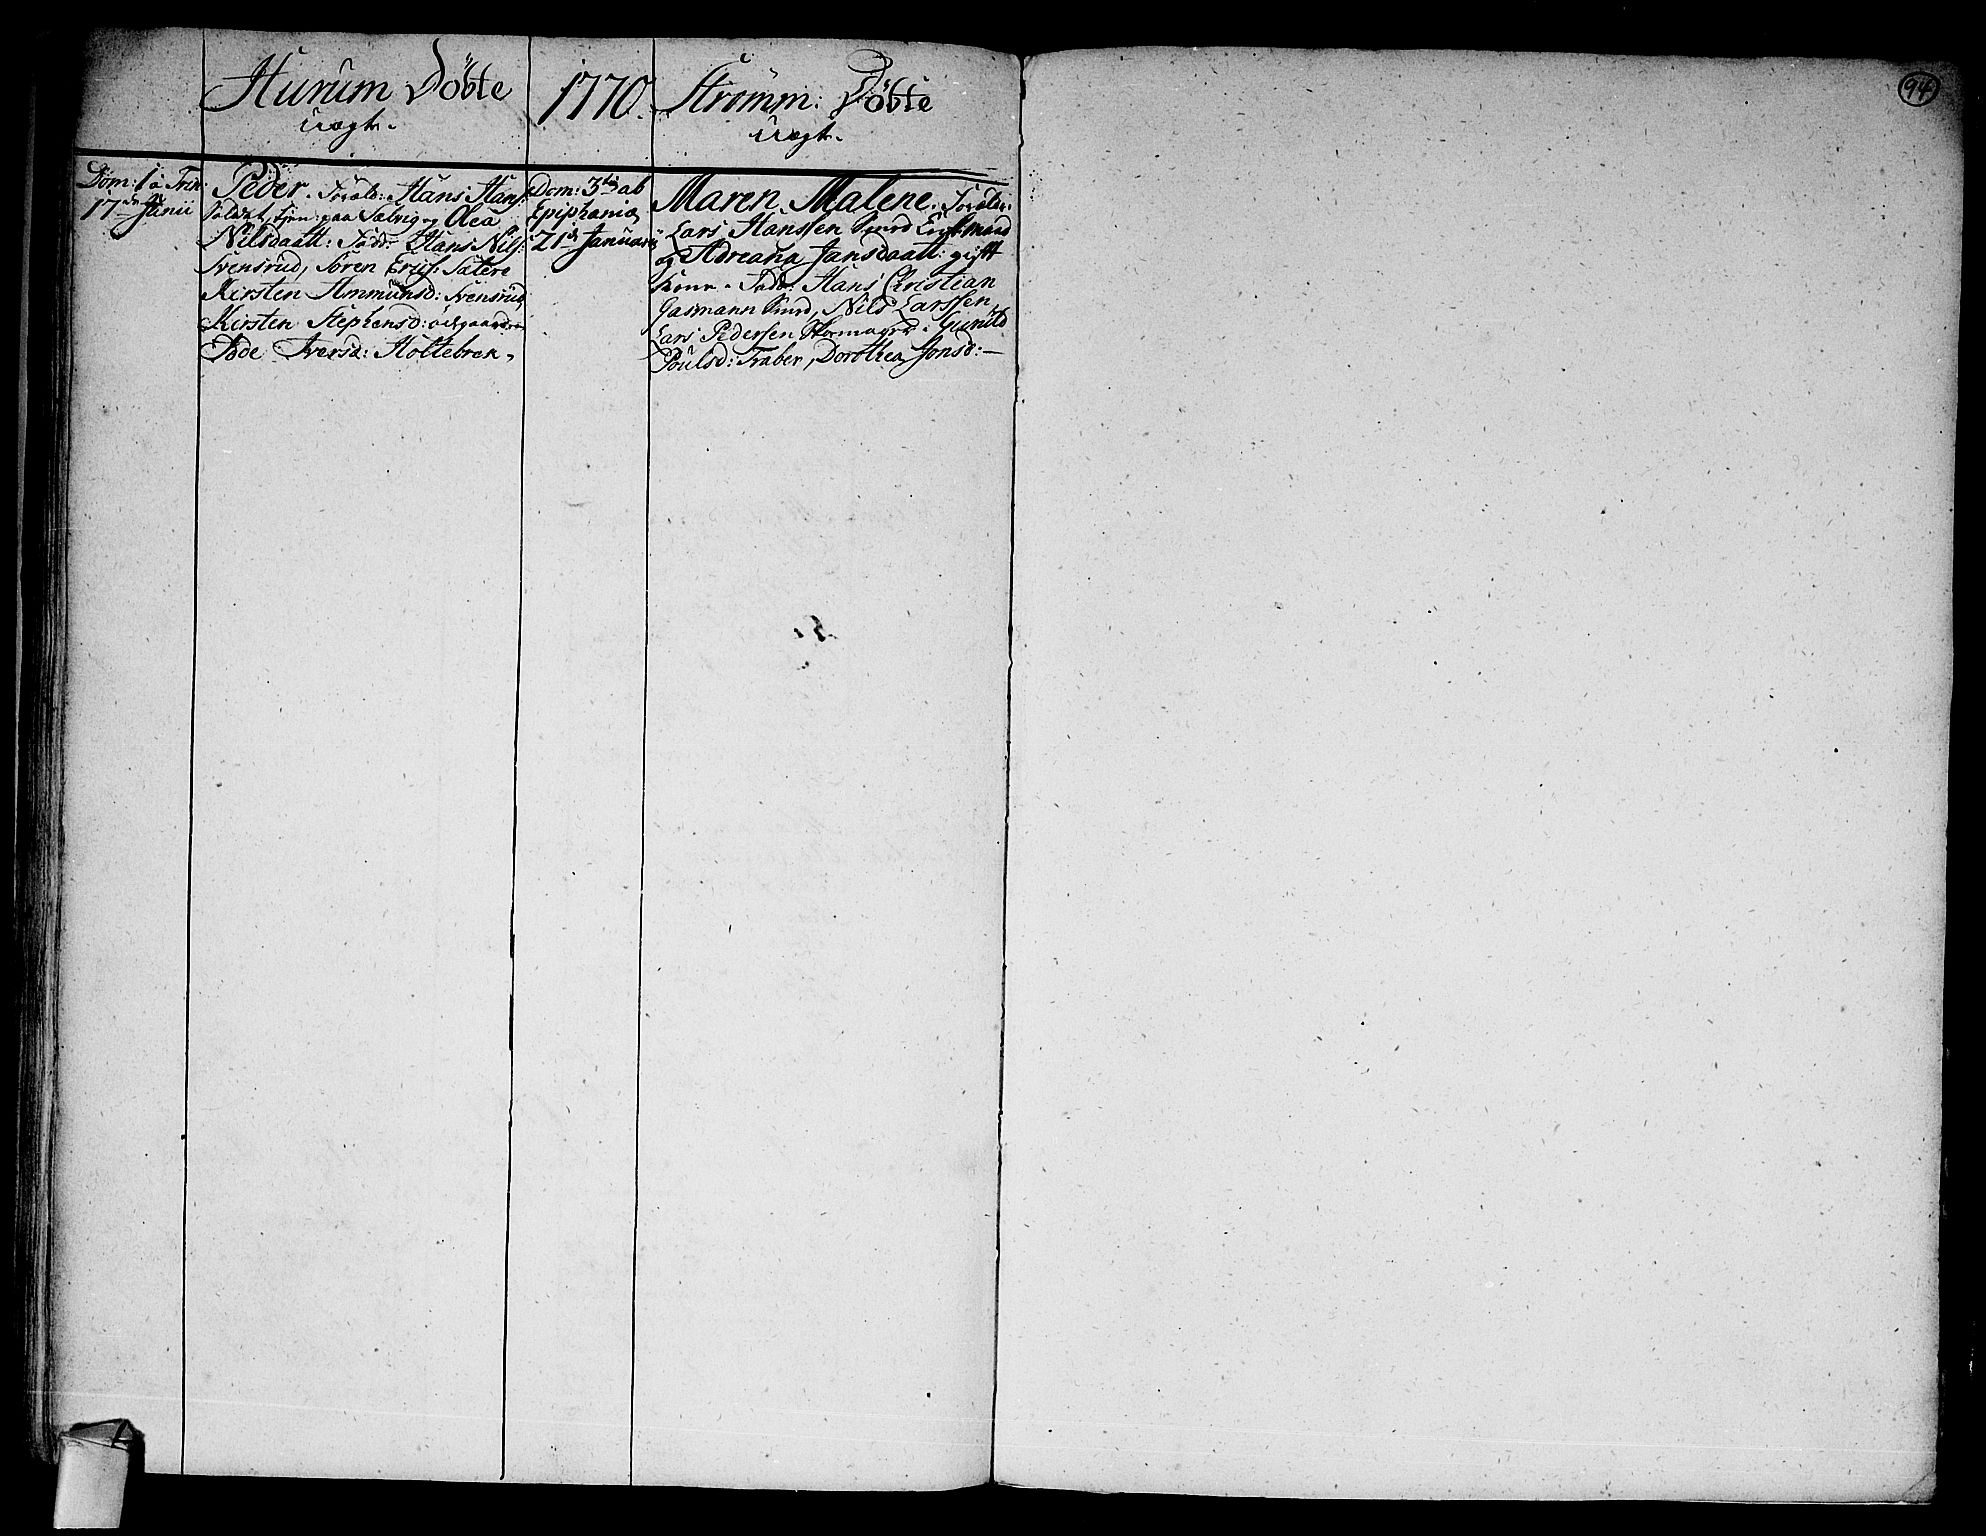 Hurum Döbte
uægt.
1770.
Strømm: Döbte
uægt.
94
Dom: 1 a Trin:
17de Junii
Peder. Foræld: Hans Hans:
Soldat, tjen: paa Sætrig og Olea
Nilsdaatt: Fadd: Hans Nils:
Svensrud, Søren Erics: Sætere
Kirsten Ammunsd: Svensrud,
Kirsten Stephensd:
Iversd: Holtebrek.
Dom: 3tia ab
Epiphania
21de Januarii
Maren Malene. Foræld:
Lars Hanssen
og Adreana Jansdaatt: gift
Kone. Fadd: Hans Christian
Gasmann Nils Larssen,
Lars Pedersen Gunild
Poulsd: Traber, Dorothea Jonsd: